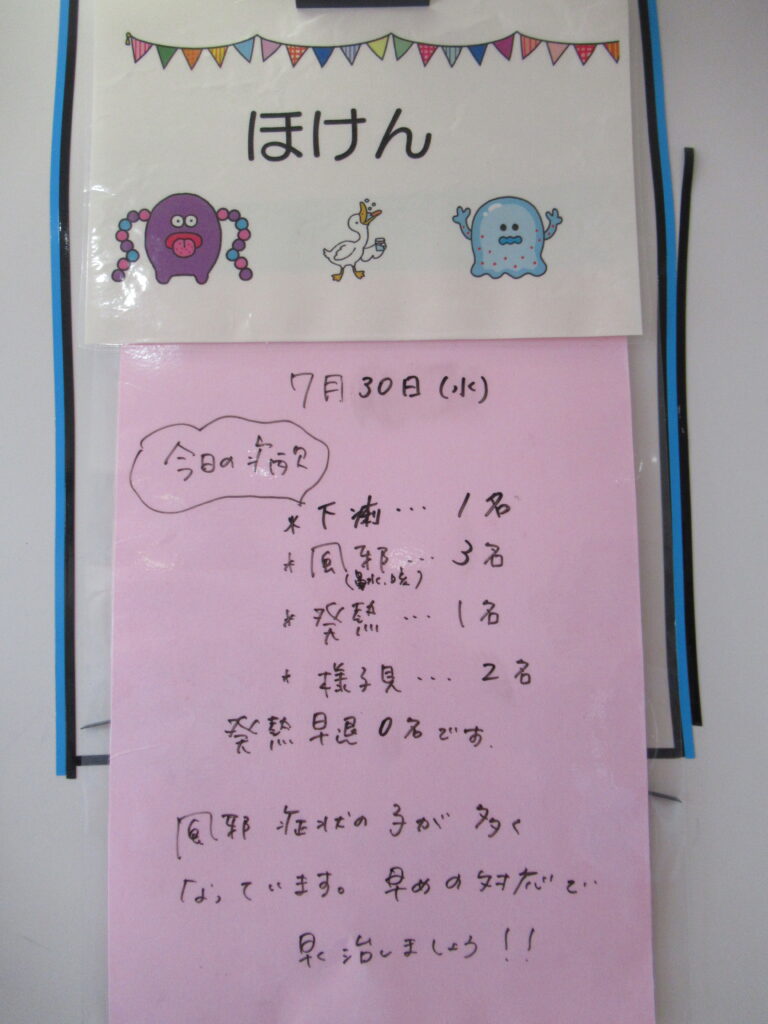 ほけん
7月30日(水)
今日の病欠
* 下痢… 1名
* 風邪… 3名
(鼻水.咳)
* 発熱… 1名
* 様子見… 2名
発熱早退0名です.
風邪症状の子が多く
なっています。早めの対応で
早く治しましょう!!